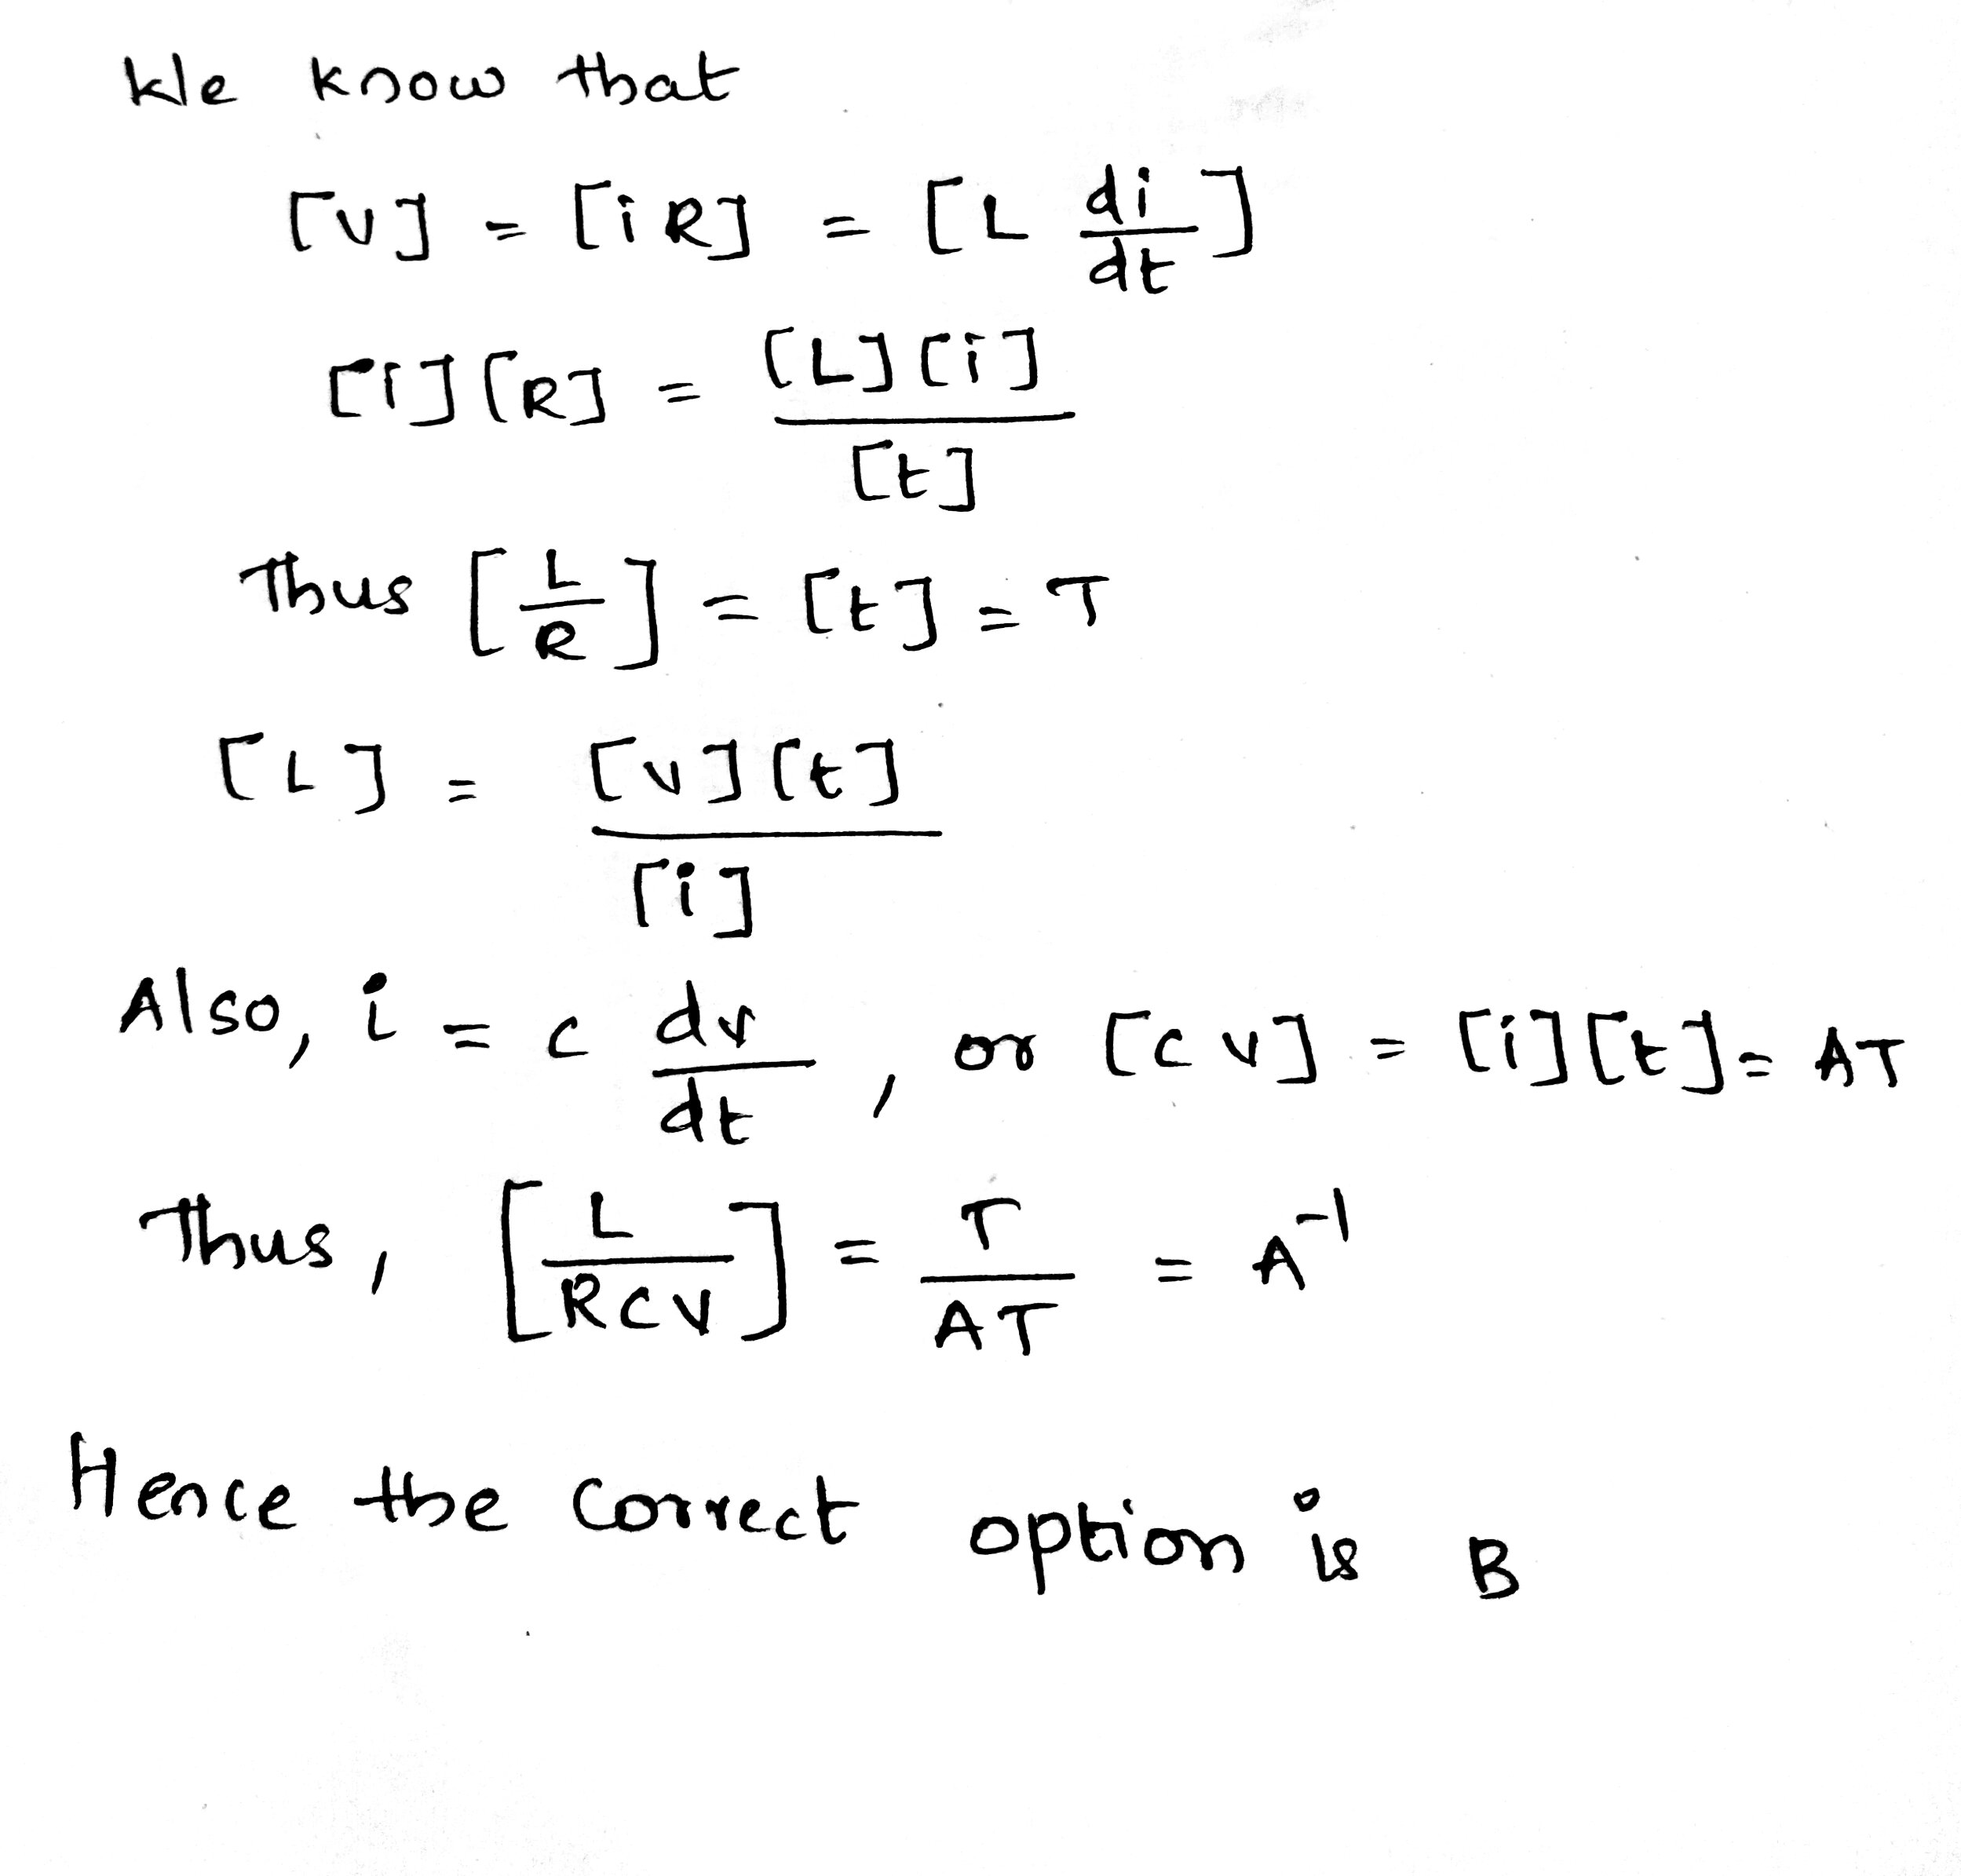 We know that
[V] = [iR] = [L di/dt]
[i][R] = [L][i]/[t]
Thus [L/R] = [t] = T
[L] = [V][t]/[i]
Also, i = C dv/dt, or [CV] = [i][t] = AT
Thus, [L/RCV] = T/AT = A⁻¹
Hence the correct option is B